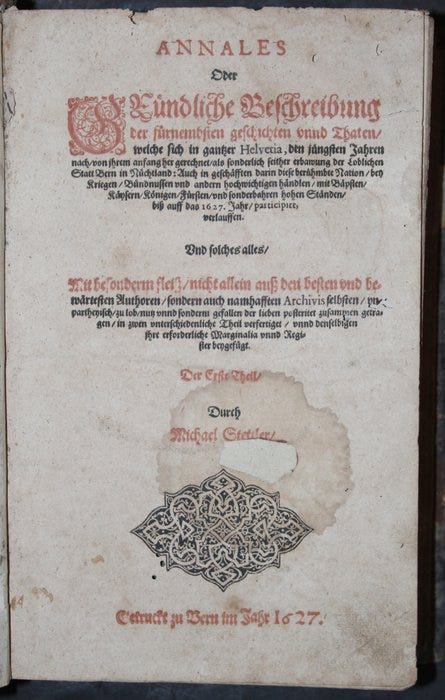 ANNALES
Oder
Gründliche Beschreibung
der fürnembsten geschichten vnnd Thaten/
welche sich in gantzer Helvetia, den jüngsten Jahren
nach/von jhrem anfang her gerechnet/als sonderlich seither erbawung der Loblichen
Statt Bern in Nüchtland: Auch in geschäfften darin diese berühmbte Nation/bey
Kriegen/Bündnussen vnd andern hochwichtigen händlen/mit Bäpsten/
Käysern/Königen/Fürsten/vnd sonderbahren hohen Ständen/
biß auff das 1627. Jahr/participirt,
verlauffen.
Vnd solches alles/
Mit besonderm fleiß/nicht allein auß den besten vnd be-
wärtesten Authoren/sondern auch namhafften Archivis selbsten/vn-
partheyisch/zu lob/nutz vnnd sonderm gefallen der lieben posteritet zusammen getra-
gen/in zwen vnterschiedenliche Theil verfertiget/vnnd denselbigen
jhre erforderliche Marginalia vnnd Regi-
ster beygefügt.
Der Erste Theil/
Durch
Michael Stettler/
Getruckt zu Bern im Jahr 1627.